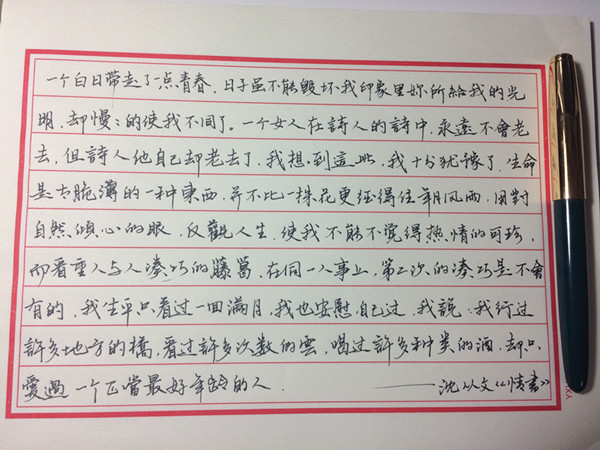 一个白日带走了一点青春，日子虽不能毁坏我印象里妳所给我的光
明，却慢：的使我不同了。一个女人在詩人的詩中，永遠不會老
去，但詩人他自己却老去了，我想到這些，我十分犹豫了，生命
是太脆薄的一种東西，并不比一株花更经得住年月风雨，用對
自然倾心的眼，反觀人生，使我不能不覺得热情的可珍，
而看重人与人凑巧的藤葛，在同一人事上，第二次的凑巧是不會
有的，我生平只看过一回满月，我也安慰自己过，我説：我行过
許多地方的橋，看过許多次数的雲，喝过許多种类的酒，却只
愛過一个正當最好年龄的人．——沈从文《情書》